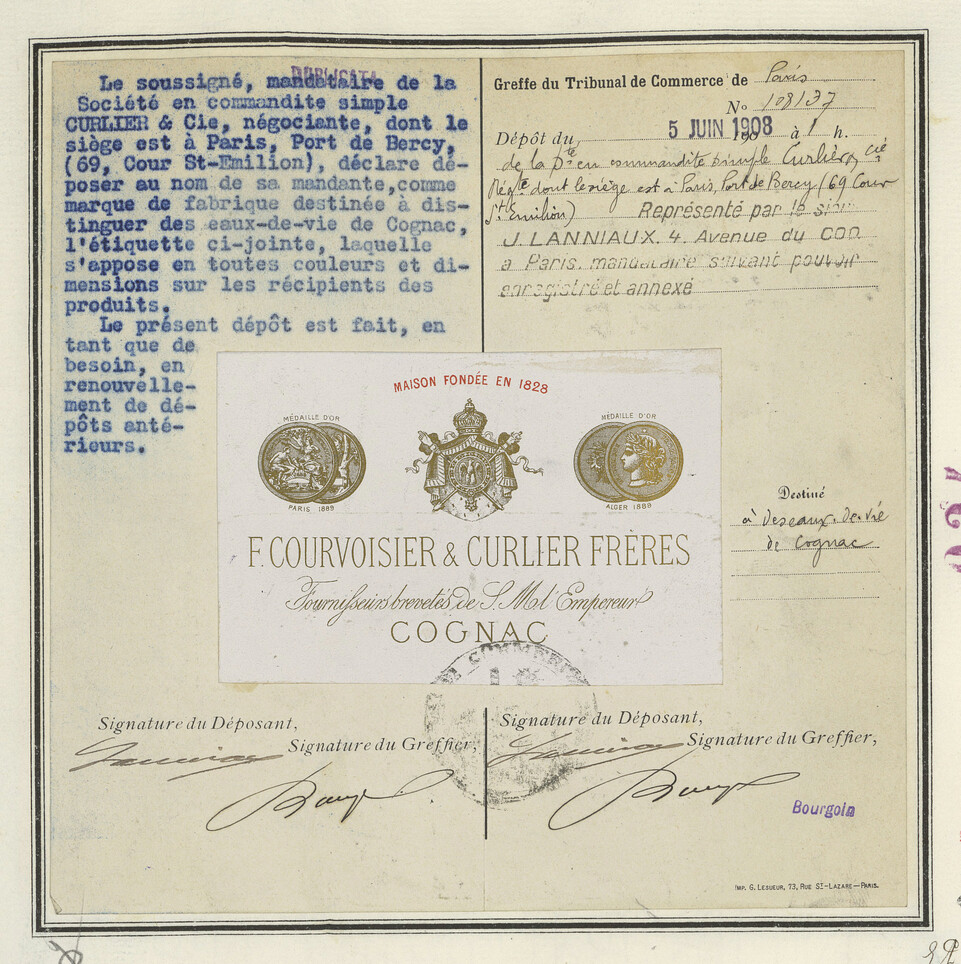 DUPLICATA
Le soussigné, mandataire de la
Société en commandite simple
CURLIER & Cie, négociante, dont le
siège est à Paris, Port de Bercy,
(69, Cour St-Emilion), déclare dé-
poser au nom de sa mandante,comme
marque de fabrique destinée à dis-
tinguer des eaux-de-vie de Cognac,
l'étiquette ci-jointe, laquelle
s'appose en toutes couleurs et di-
mensions sur les récipients des
produits.
Le présent dépôt est fait, en
tant que de
besoin, en
renouvelle-
ment de dé-
pôts anté-
rieurs.
Greffe du Tribunal de Commerce de Paris
No 108137
Dépôt du 5 JUIN 1908 à 1 h.
de la Sté en commandite simple Curlier, cie
Négte dont le siège est à Paris, Port de Bercy (69 Cour
St Emilion) Représenté par le sieur
J. LANNIAUX. 4. Avenue du Coq
a Paris. mandataire suivant pouvoir
enregistré et annexé
MAISON FONDÉE EN 1828
MÉDAILLE D'OR
PARIS 1889
MÉDAILLE D'OR
ALGER 1889
F. COURVOISIER & CURLIER FRÈRES
Fournisseurs brevetés de S. M. l'Empereur
COGNAC
Destiné
à des eaux-de-vie
de Cognac
COMMERCE
Signature du Déposant,
Signature du Greffier,
Signature du Déposant,
Signature du Greffier,
Bourgoin
IMP. G. LESUEUR, 73, RUE ST-LAZARE — PARIS.